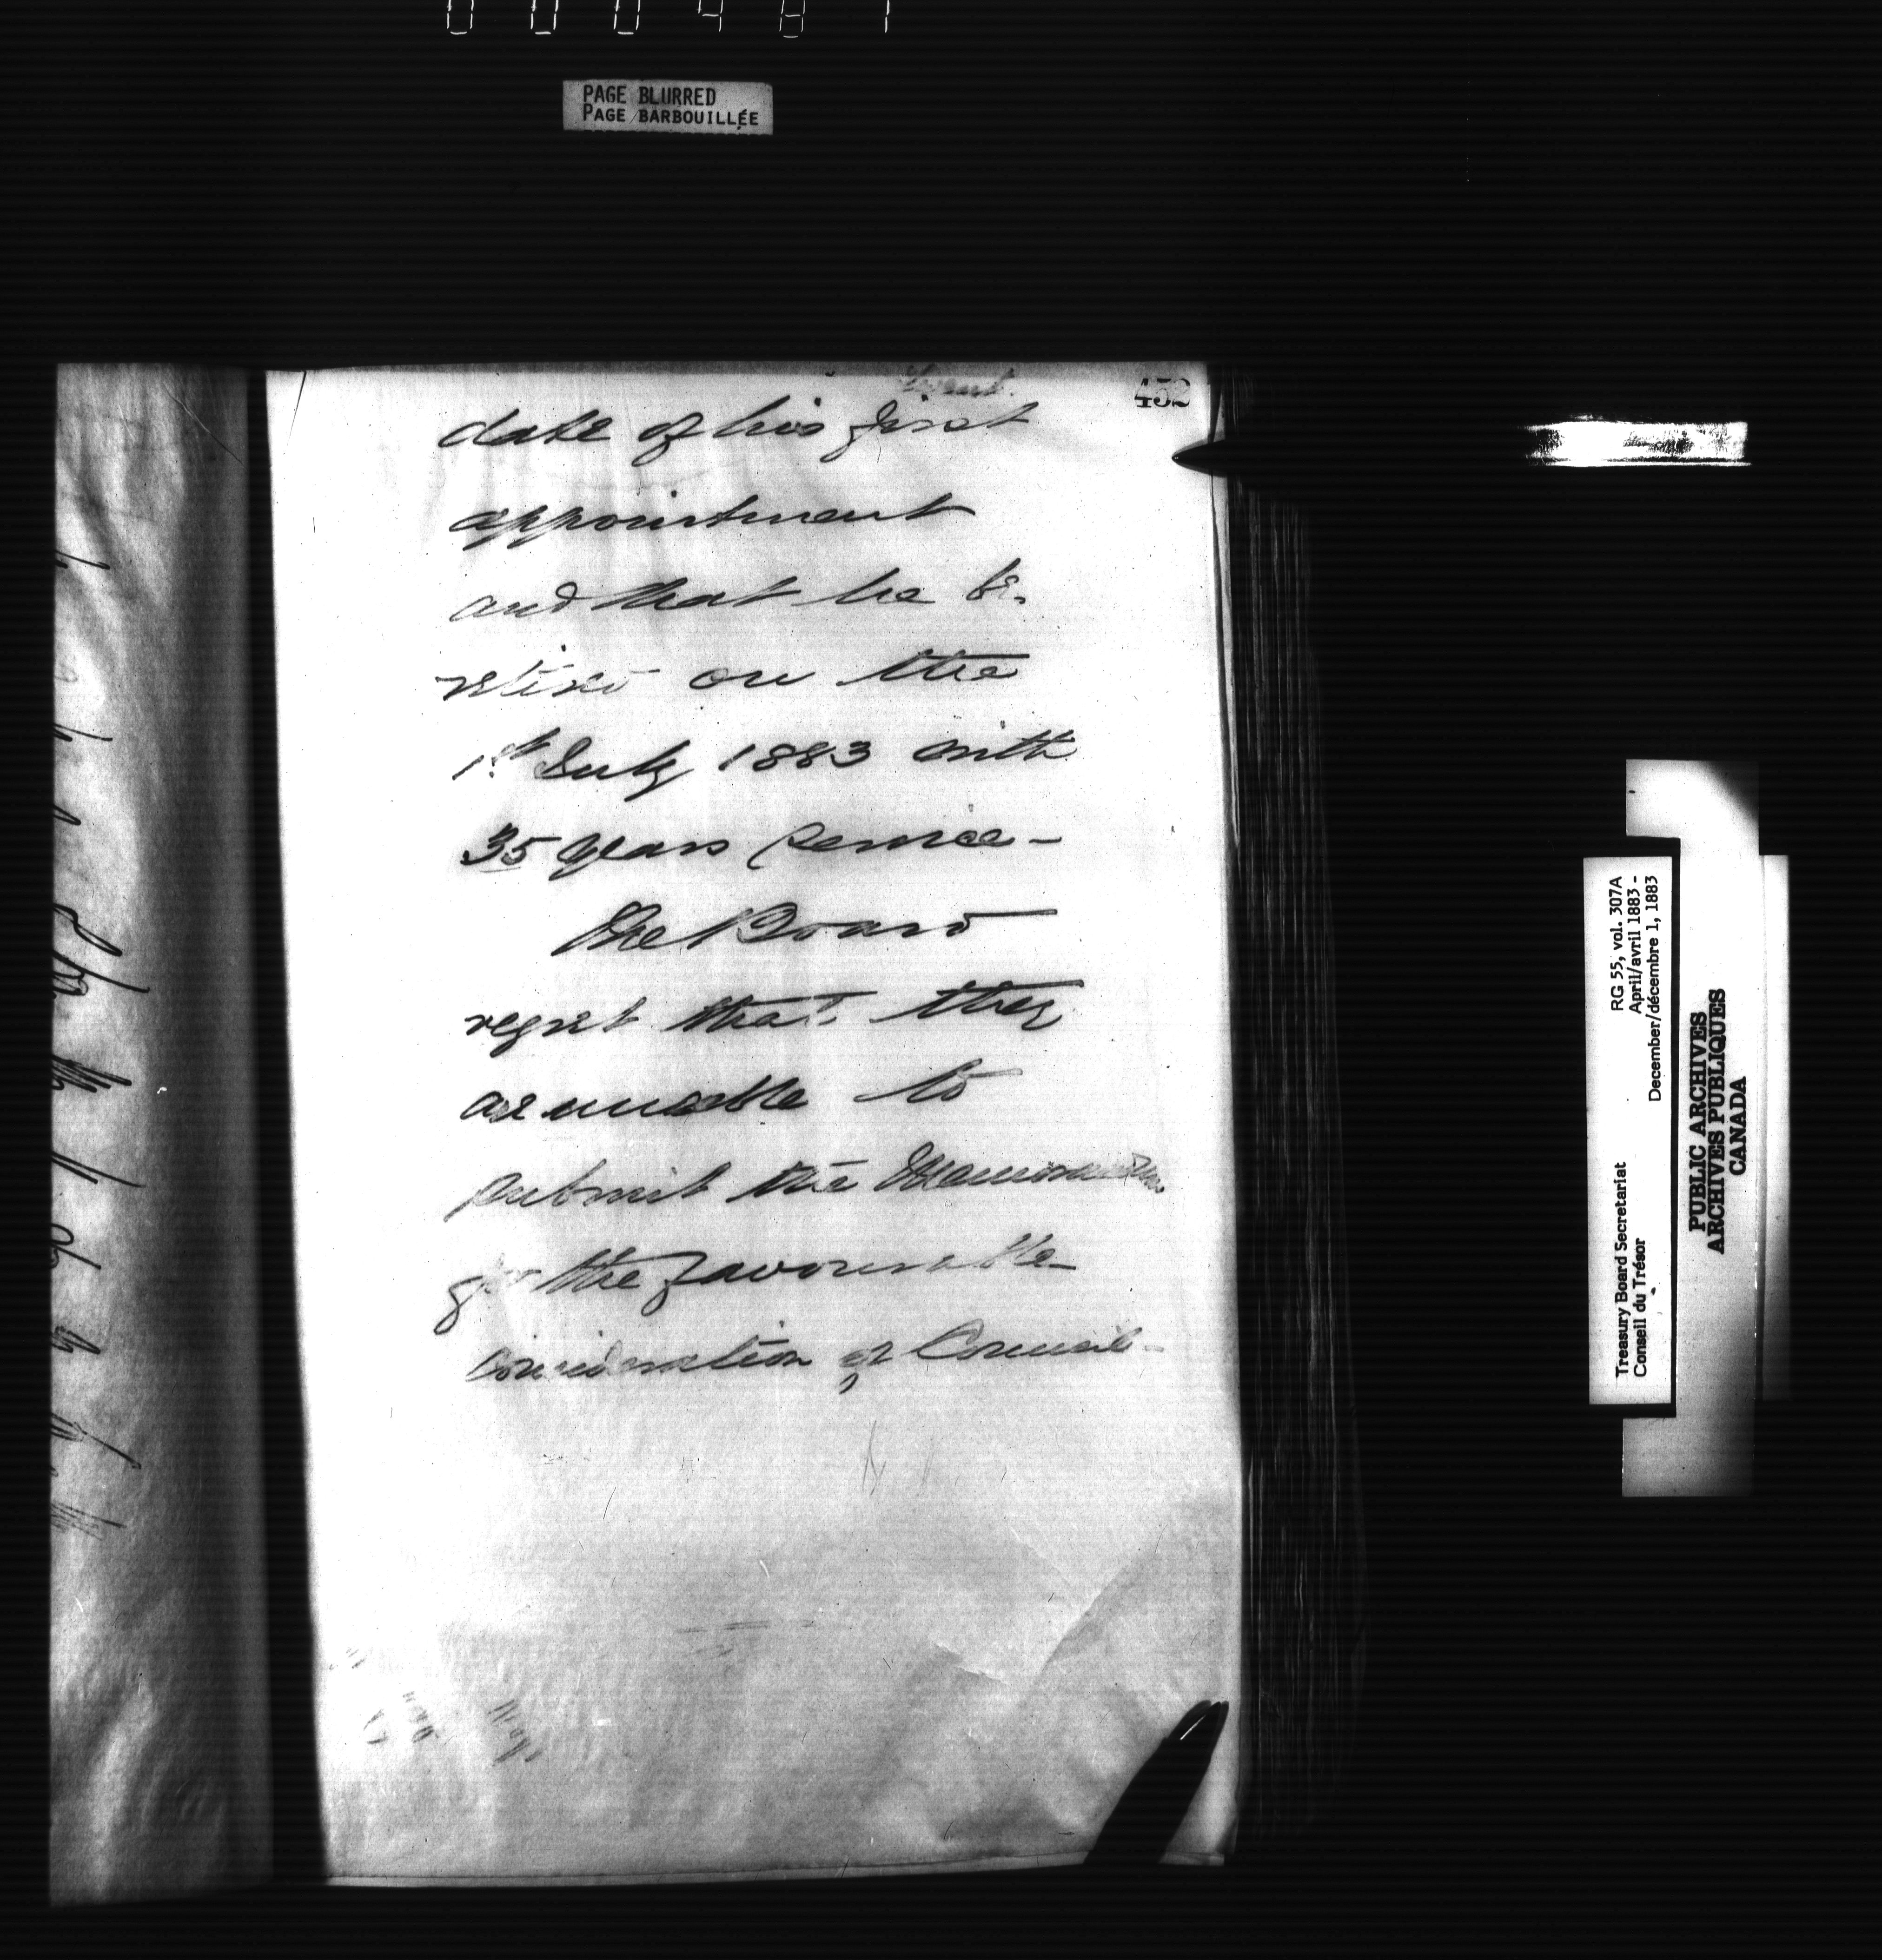 000481
PAGE BLURRED
PAGE BARBOUILLÉE
452
date of his first
appointment
and that he be
retired on the
1st July 1883 with
35 years service -
The Board
regret that they
are unable to
submit the Memorandum
for the favourable
consideration of Council -
RG 55, vol. 307A
April/avril 1883 -
December/décembre 1, 1883
Treasury Board Secretariat
Conseil du Trésor
PUBLIC ARCHIVES
ARCHIVES PUBLIQUES
CANADA